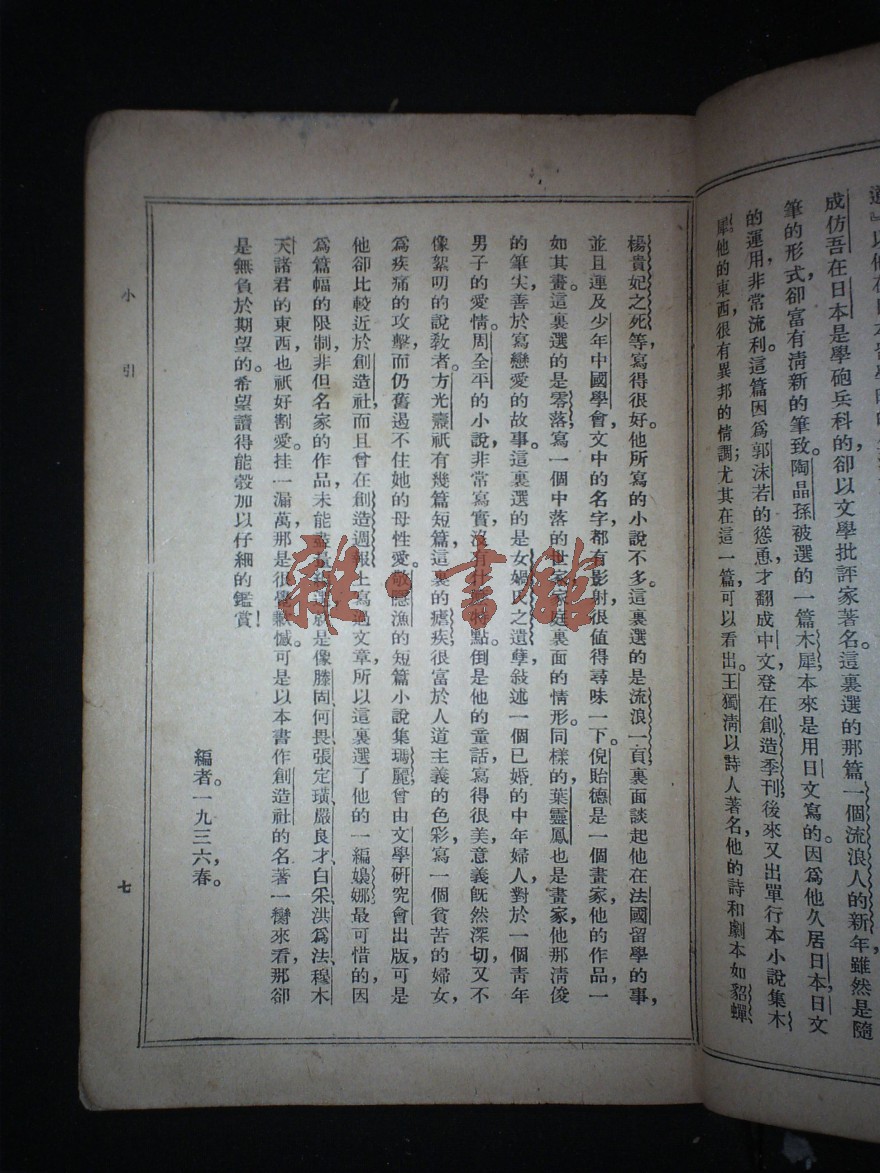 成仿吾在日本是學砲兵科的,卻以文學批評家著名。這裏選的那篇一個流浪人的新年,雖然是隨
筆的形式,卻富有清新的筆致。陶晶孫被選的一篇木犀,本來是用日文寫的。因爲他久居日本,日文
的運用,非常流利。這篇因爲郭沫若的慫恿,才翻成中文,登在創造季刊,後來又出單行本小說集木
犀。他的東西,很有異邦的情調;尤其在這一篇,可以看出。王獨淸以詩人著名,他的詩和劇本如貂蟬
楊貴妃之死等,寫得很好。他所寫的小說不多。這裏選的是流浪一頁,裏面談起他在法國留學的事,
並且連及少年中國學會,文中的名字,都有影射,很值得尋味一下。倪貽德是一個畫家,他的作品,一
如其畫。這裏選的是零落,寫一個中落的世家家庭裏面的情形。同樣的,葉靈鳳也是畫家,他那淸俊
的筆尖,善於寫戀愛的故事。這裏選的是女媧氏之遺孽,敍述一個已婚的中年婦人,對於一個靑年
男子的愛情。周全平的小說,非常寫實,沒有什麼特點。倒是他的童話,寫得很美,意義旣然深切,又不
像絮叨的說敎者。方光燾祇有幾篇短篇,這裏的瘧疾,很富於人道主義的色彩,寫一個貧苦的婦女,
爲疾痛的攻擊,而仍舊遏不住她的母性愛。敬隱漁的短篇小說集瑪麗,曾由文學研究會出版,可是
他卻比較近於創造社,而且曾在創造週報上寫過文章,所以這裏選了他的一編嬝娜。最可惜的,因
爲篇幅的限制,非但名家的作品,未能盡量編選,就是像滕固、何畏、張定璜、嚴良才、白采、洪爲法、穆木
天諸君的東西,也祇好割愛。挂一漏萬,那是很覺歉憾。可是以本書作創造社的名著一臠來看,那卻
是無負於期望的。希望讀得能彀加以仔細的鑑賞!
編者。一九三六,春。
小引
七
雜·書館